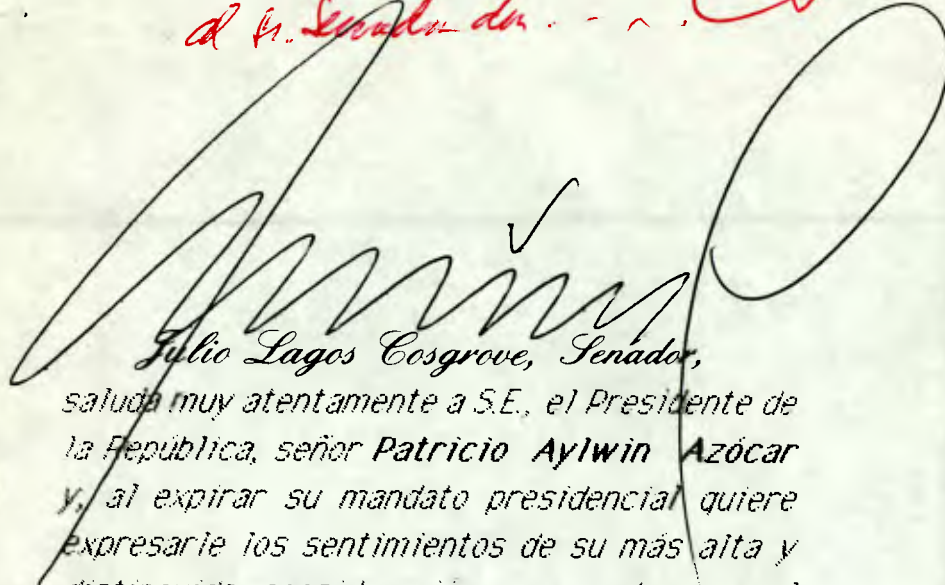 al Sr. Senador don . - ^ .
Julio Lagos Cosgrove, Senador,
saluda muy atentamente a S.E., el Presidente de
la República, señor Patricio Aylwin Azócar
y, al expirar su mandato presidencial quiere
expresarle los sentimientos de su más alta y